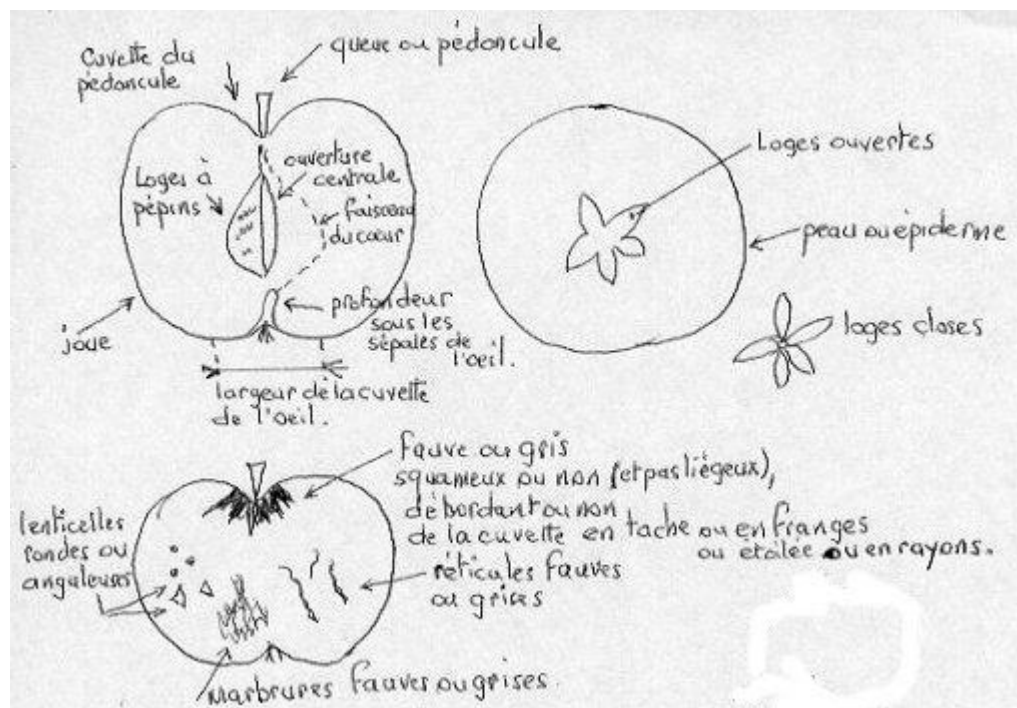 Cuvette du
pédoncule
queue ou pédoncule
Loges à
pépins
ouverture
centrale
faisceau
du cœur
joue
profondeur
sous les
sépales de
l'oeil.
largeur de la cuvette
de l'oeil.
Loges ouvertes
peau ou épiderme
loges closes
fauve ou gris
squameux ou non (et pas liégeux),
débordant ou non
de la cuvette en tache ou en franges
ou étoilée ou en rayons.
lenticelles
rondes ou
anguleuses
réticules fauves
ou grises
Marbrures fauves ou grises.